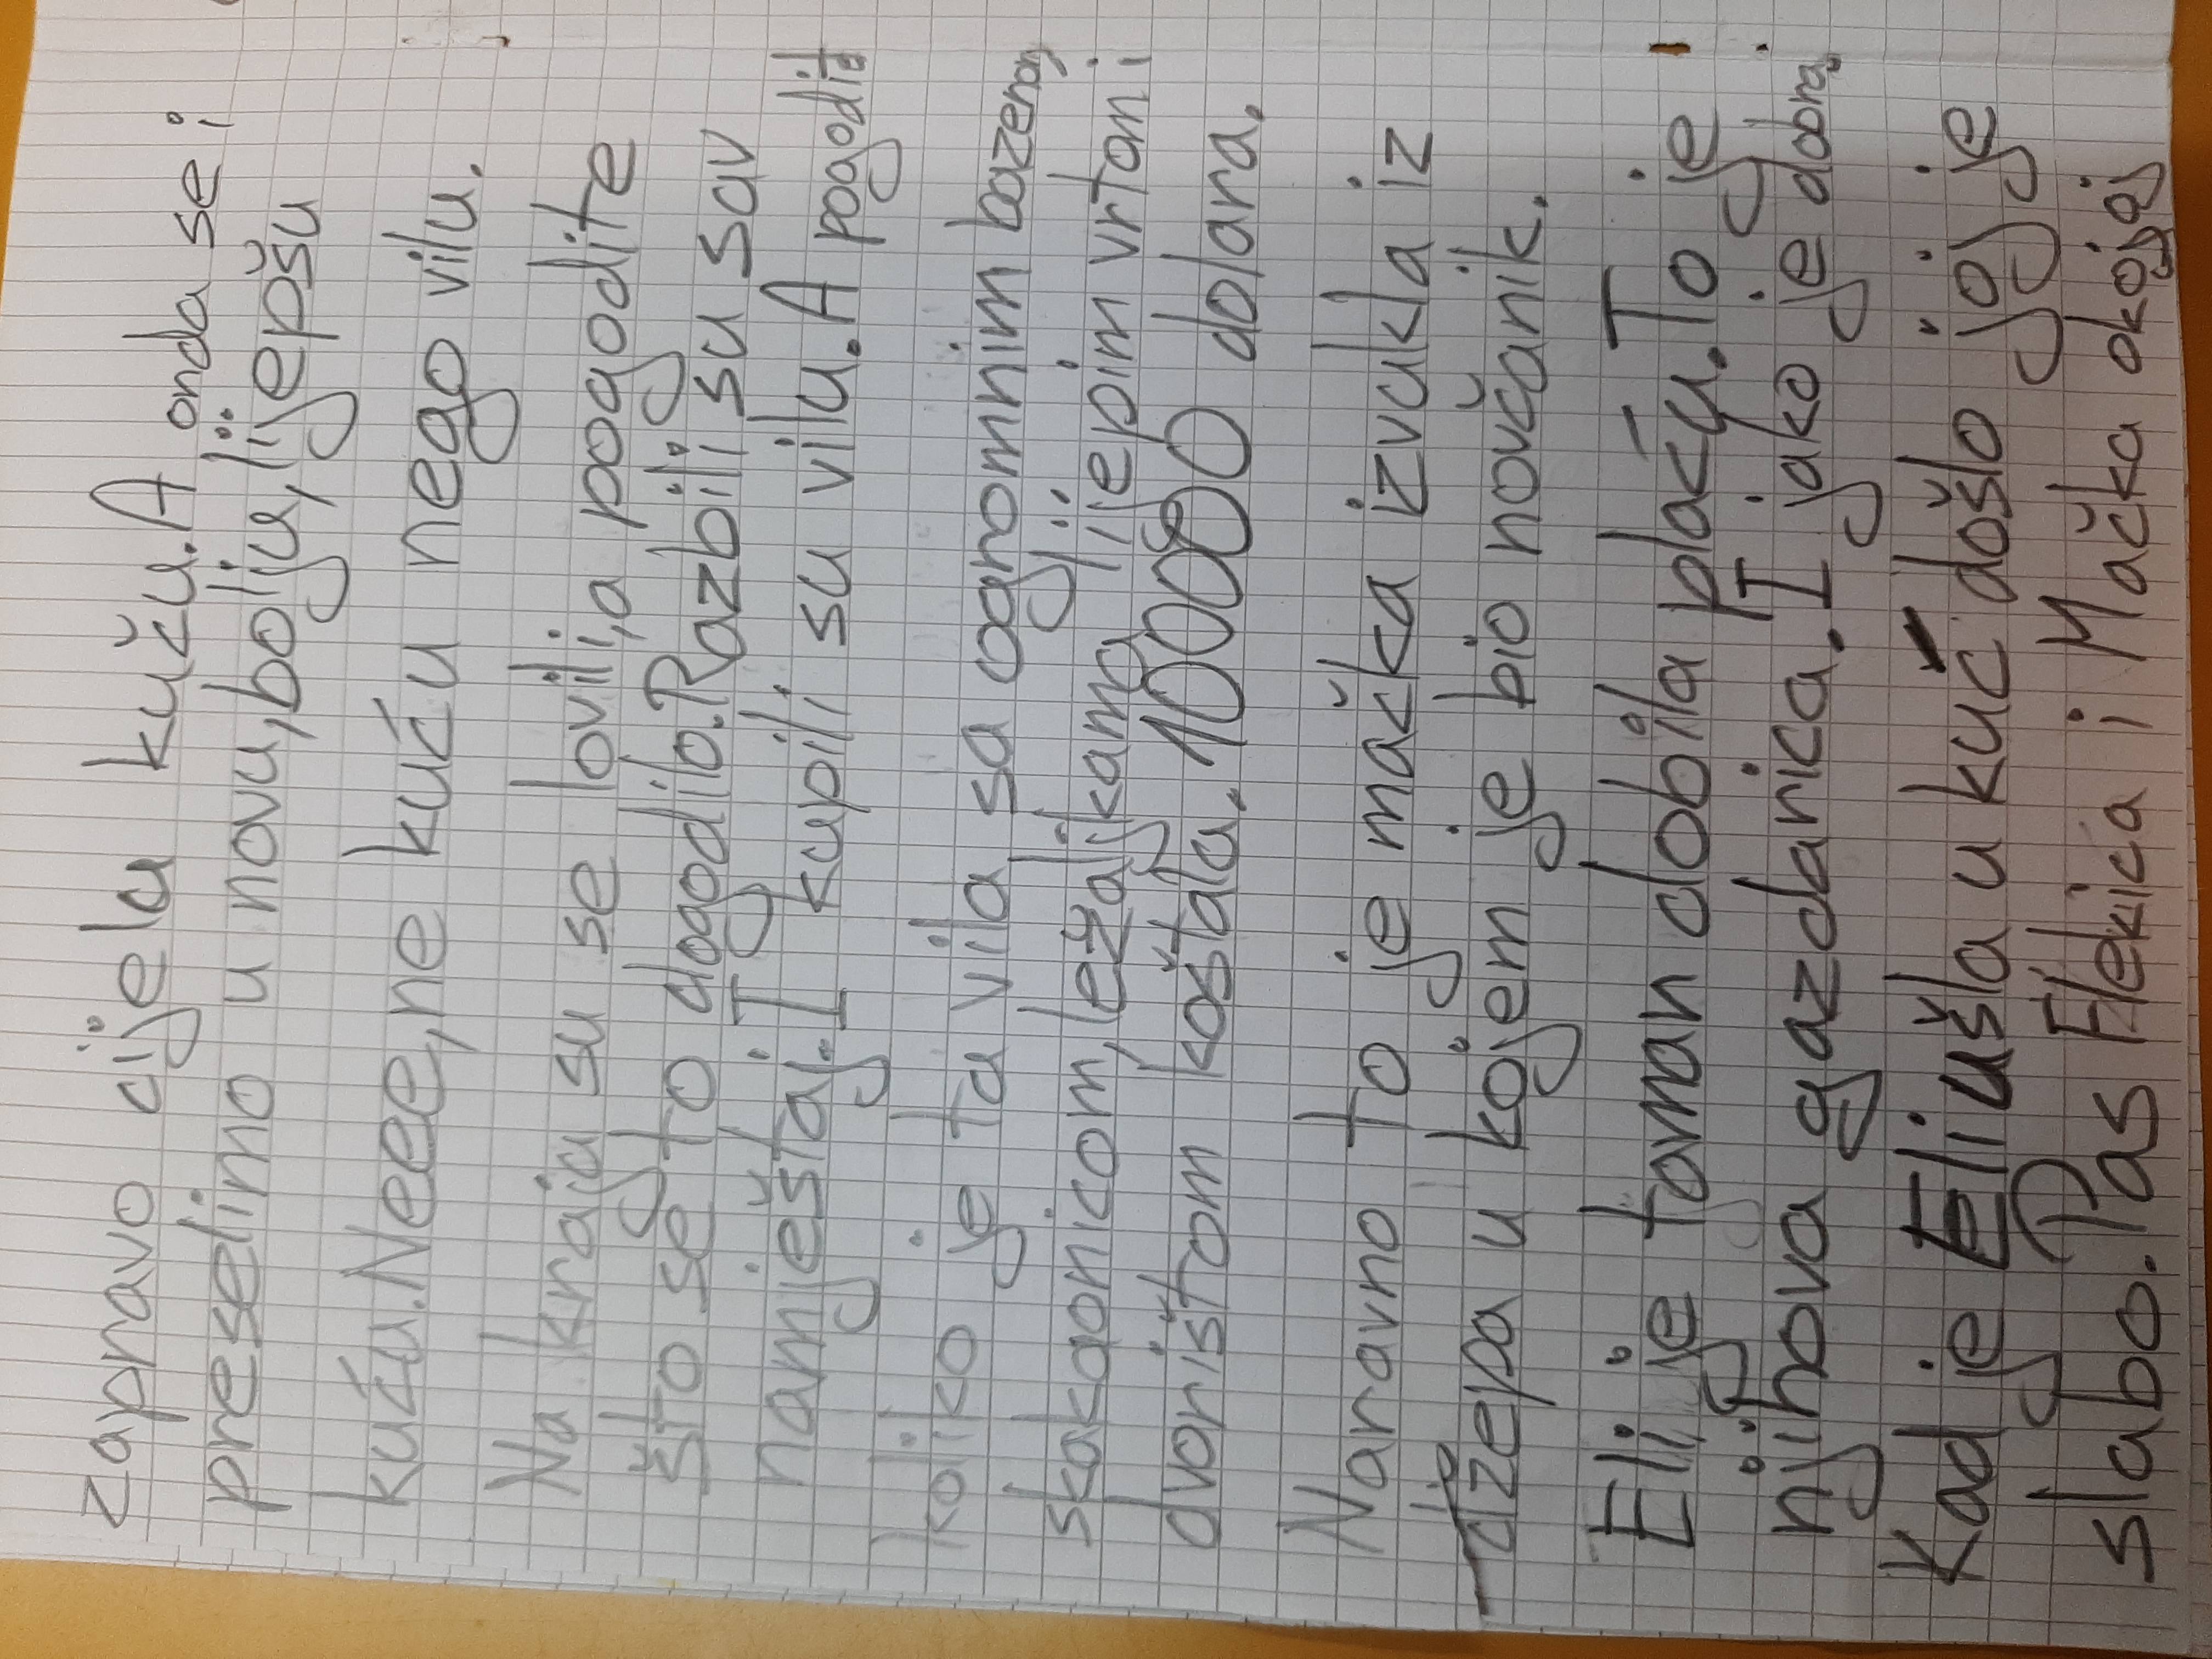 zapravo cijelu kuču. A onda se i
preselimo u novu, bolju, lijepšu
kuću. Neee, ne kuću nego vilu.
Na kraju su se lovili, a pogodite
što se to dogodilo. Razbili su sav
namještaj. I kupili su vilu. A pogodite
koliko je ta vila sa ogromnim bazenom,
skakaonicom, ležaljkama, lijepim vrtom i
dvorištom koštala. 10000 dolara.
Naravno to je mačka izvukla iz
džepa u kojem je bio novčanik.
Eli je taman dobila plaću. To je
njihova gazdarica. I jako je dobra.
Kad je Eli ušla u kuć došlo joj je
slabo. Pas Flekica i Mačka okojoj